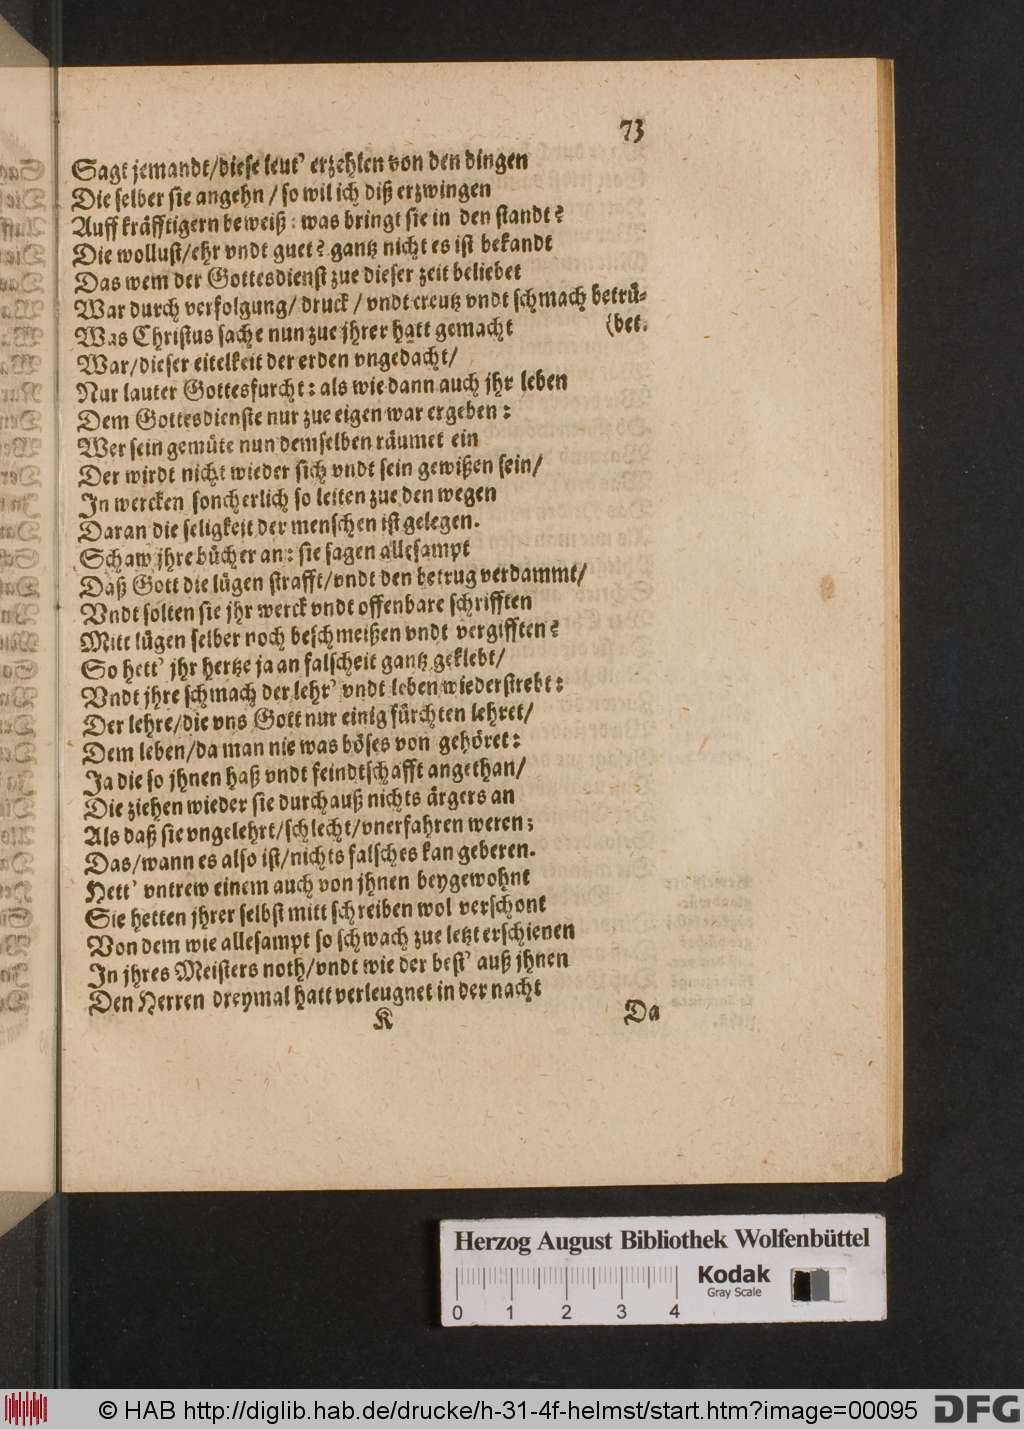 73
Sagt jemandt/diese leut' erzehlen von den dingen
Die selber sie angehn / so wil ich diß erzwingen
Auff kräfftigern beweiß: was bringt sie in den standt?
Die wollust/ehr vndt guet? gantz nicht es ist bekandt
Das wem der Gottesdienst zue dieser zeit beliebet
War durch verfolgung/ druck / vndt creutz vndt schmach betrü-
(bet.
Was Christus sache nun zue jhrer hatt gemacht
War/dieser eitelkeit der erden vngedacht/
Nur lauter Gottesfurcht: als wie dann auch jhr leben
Dem Gottesdienste nur zue eigen war ergeben:
Wer sein gemüte nun demselben räumet ein
Der wirdt nicht wieder sich vndt sein gewißen sein/
In wercken soncherlich so leiten zue den wegen
Daran die seligkeit der menschen ist gelegen.
Schaw jhre bücher an: sie sagen allesampt
Daß Gott die lügen strafft/vndt den betrug verdammt/
Vndt solten sie jhr werck vndt offenbare schrifften
Mitt lügen selber noch beschmeißen vndt vergifften?
So hett' jhr hertze ja an falscheit gantz geklebt/
Vndt jhre schmach der lehr' vndt leben wiederstrebt:
Der lehre/die vns Gott nur einig fürchten lehret/
Dem leben/da man nie was böses von gehöret:
Ja die so jhnen haß vndt feindtschafft angethan/
Die ziehen wieder sie durchauß nichts ärgers an
Als daß sie vngelehrt/schlecht/vnerfahren weren;
Das/wann es also ist/nichts falsches kan geberen.
Hett' vntrew einem auch von jhnen beygewohnt
Sie hetten jhrer selbst mitt schreiben wol verschont
Von dem wie allesampt so schwach zue letzt erschienen
In jhres Meisters noth/vndt wie der best' auß jhnen
Den Herren dreymal hatt verleugnet in der nacht
K Da
Herzog August Bibliothek Wolfenbüttel
Kodak
Gray Scale
0 1 2 3 4
© HAB http://diglib.hab.de/drucke/h-31-4f-helmst/start.htm?image=00095
DFG